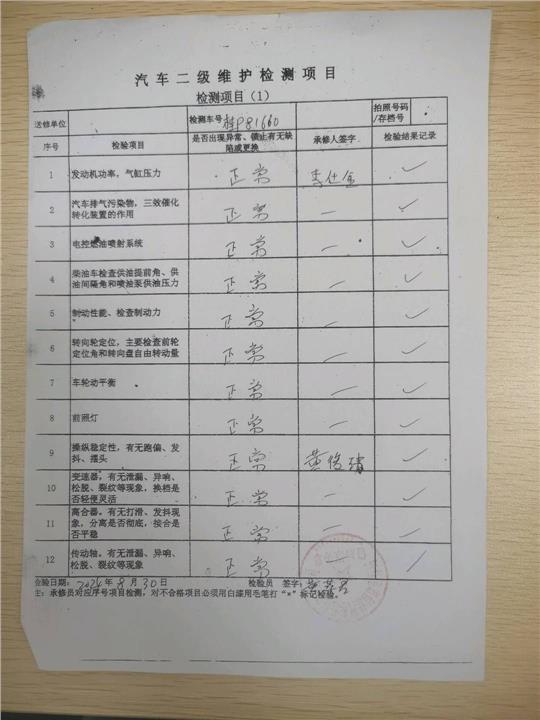 汽车二级维护检测项目
检测项目（1）
送修单位 检测车号 桂P81660 拍照号码/存档号
序号 检验项目 是否出现异常、锁止有无缺陷或更换 承修人签字 检验结果记录
1 发动机功率，气缸压力 正常 李仕金 ✓
2 汽车排气污染物，三效催化转化装置的作用 正常 — ✓
3 电控燃油喷射系统 正常 — ✓
4 柴油车检查供油提前角、供油间隔角和喷油泵供油压力 正常 — ✓
5 制动性能、检查制动力 正常 — ✓
6 转向轮定位，主要检查前轮定位角和转向盘自由转动量 正常 — ✓
7 车轮动平衡 正常 — ✓
8 前照灯 正常 — ✓
9 操纵稳定性，有无跑偏、发抖、摆头 正常 黄俊靖 ✓
10 变速器，有无泄漏、异响、松脱、裂纹等现象，换档是否轻便灵活 正常 — ✓
11 离合器。有无打滑、发抖现象，分离是否彻底，接合是否平稳 正常 — ✓
12 传动轴。有无泄漏、异响、松脱、裂纹等现象 正常 — ✓
检验日期：2024年8月30日 检验员 签字：
主：承修员对应序号项目检测，对不合格项目必须用白漆用毛笔打“*”标记检验。